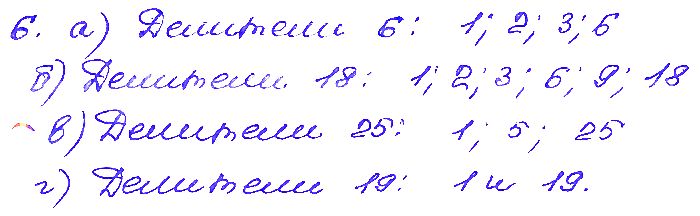 6. а) Делители 6: 1; 2; 3; 6
б) Делители 18: 1; 2; 3; 6; 9; 18
в) Делители 25: 1; 5; 25
г) Делители 19: 1 и 19.